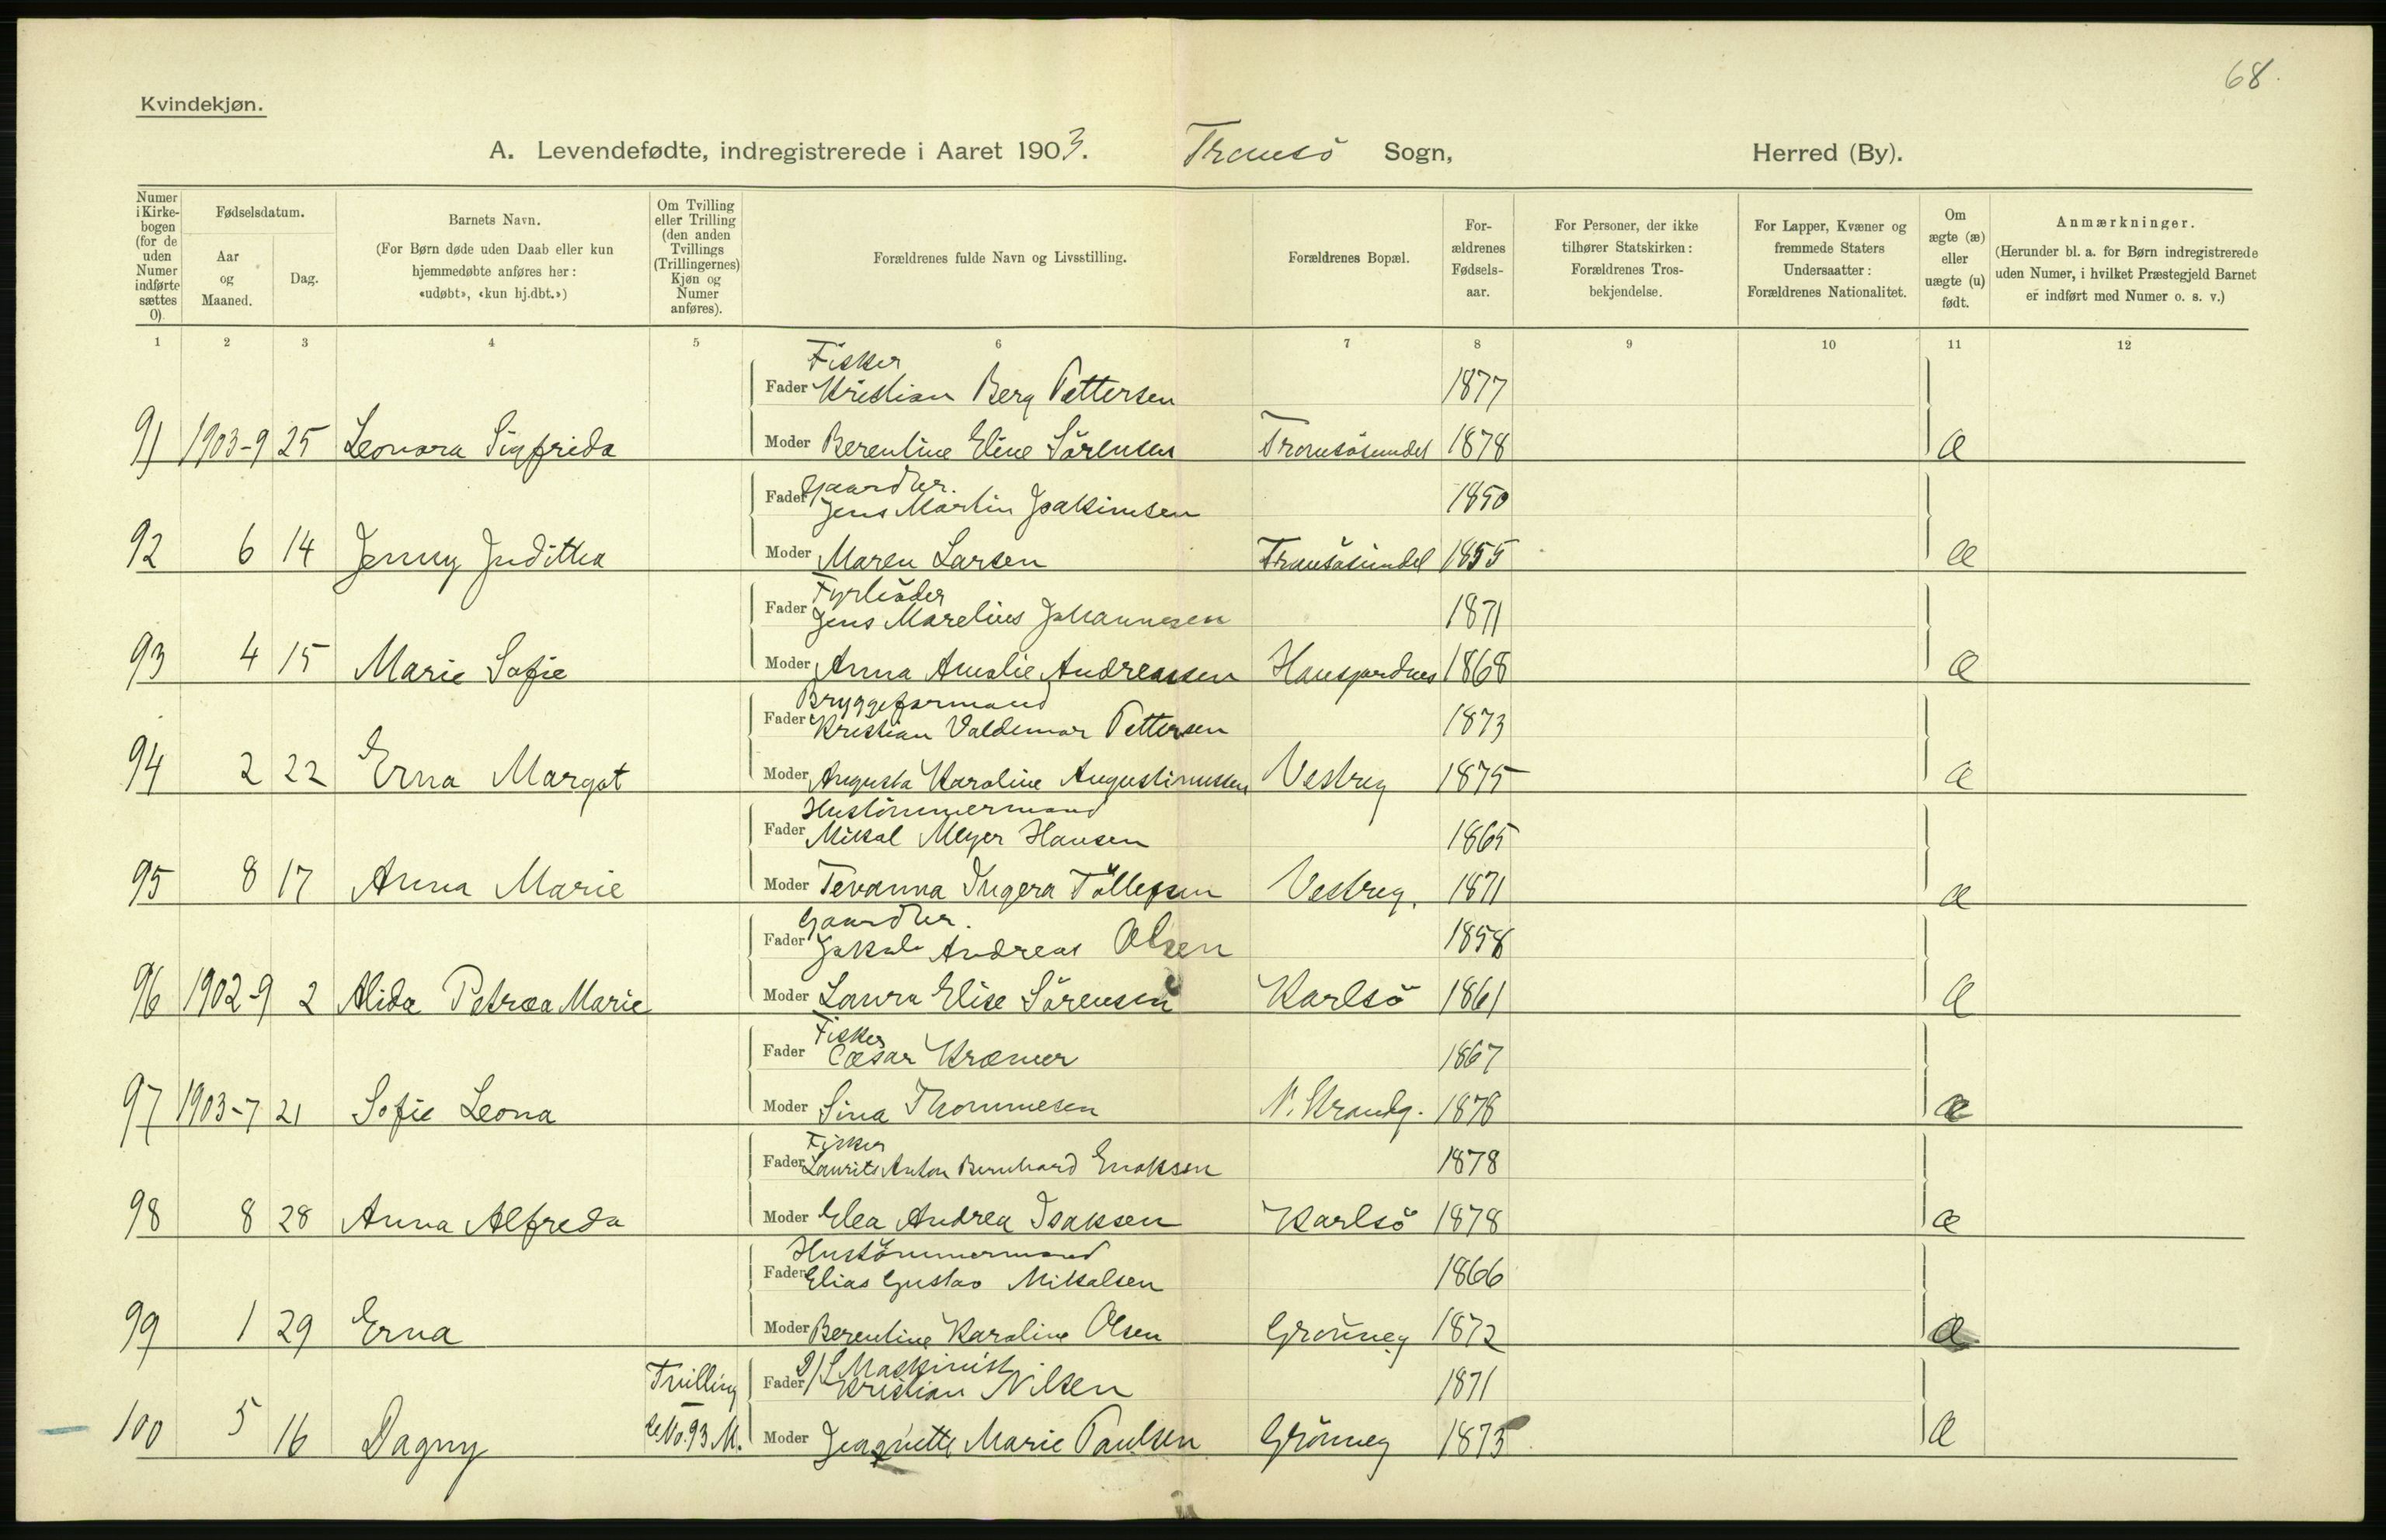 68.
Kvindekjøn.
A. Levendefødte, indregistrerede i Aaret 1903. Tromsö Sogn, Herred (By).
Numer i Kirkebogen (for de uden Numer indførte sættes 0).
Fødselsdatum.
Aar og Maaned.
Dag.
Barnets Navn.
(For Børn døde uden Daab eller kun hjemmedøbte anføres her: «udøbt», «kun hj.dbt.»)
Om Tvilling eller Trilling (den anden Tvillings (Trillingernes) Kjøn og Numer anføres).
Forældrenes fulde Navn og Livsstilling.
Forældrenes Bopæl.
Forældrenes Fødselsaar.
For Personer, der ikke tilhører Statskirken: Forældrenes Trosbekjendelse.
For Lapper, Kvæner og fremmede Staters Undersaatter: Forældrenes Nationalitet.
Om ægte (æ) eller uægte (u) født.
Anmærkninger.
(Herunder bl. a. for Børn indregistrerede uden Numer, i hvilket Præstegjeld Barnet er indført med Numer o. s. v.)
1 2 3 4 5 6 7 8 9 10 11 12
Fisker
Fader Kristian Berg Pettersen 1877
91 1903-9 25 Leonora Sigfrida Moder Berentine Eline Sörensen Tromsösundet 1878 æ
Gaardbr.
Fader Jens Martin Joakimsen 1850
92 6 14 Jenny Juditha Moder Maren Larsen Tromsösundet 1855 æ
Fyrböder
Fader Jens Marelius Johannesen 1871
93 4 15 Marie Sofie Moder Anna Amalie Andreassen Hansjordnes 1868 æ
Bryggeformand
Fader Kristian Valdemar Pettersen 1873
94 2 22 Erna Margot Moder Augusta Karoline Augustinussen Vestreg 1875 æ
Hustömmermand
Fader Mikal Meyer Hansen 1865
95 8 17 Anna Marie Moder Tevanna Ingera Töllefsen Vestreg. 1871 æ
Gaardbr.
Fader Jakob Andreas Olsen 1858
96 1902-9 2 Alida Petrea Marie Moder Laura Elise Sörensen Karlsö 1861 æ
Fisker
Fader Cæsar Kræmer 1867
97 1903-7 21 Sofie Leona Moder Sina Thommesen N. Strandg. 1878 æ
Fisker
Fader Laurits Anton Bernhard Enoksen 1878
98 8 28 Anna Alfreda Moder Elea Andrea Isaksen Karlsö 1878 æ
Hustömmermand
Fader Elias Gustav Mikalsen 1866
99 1 29 Erna Moder Berentine Karoline Olsen Grönneg 1872 æ
Tvilling D/S Maskinist
Fader Kristian Nilsen 1871
100 5 16 Dagny se No. 93 M. Moder Jeagnette Marie Paulsen Grönneg 1873 æ